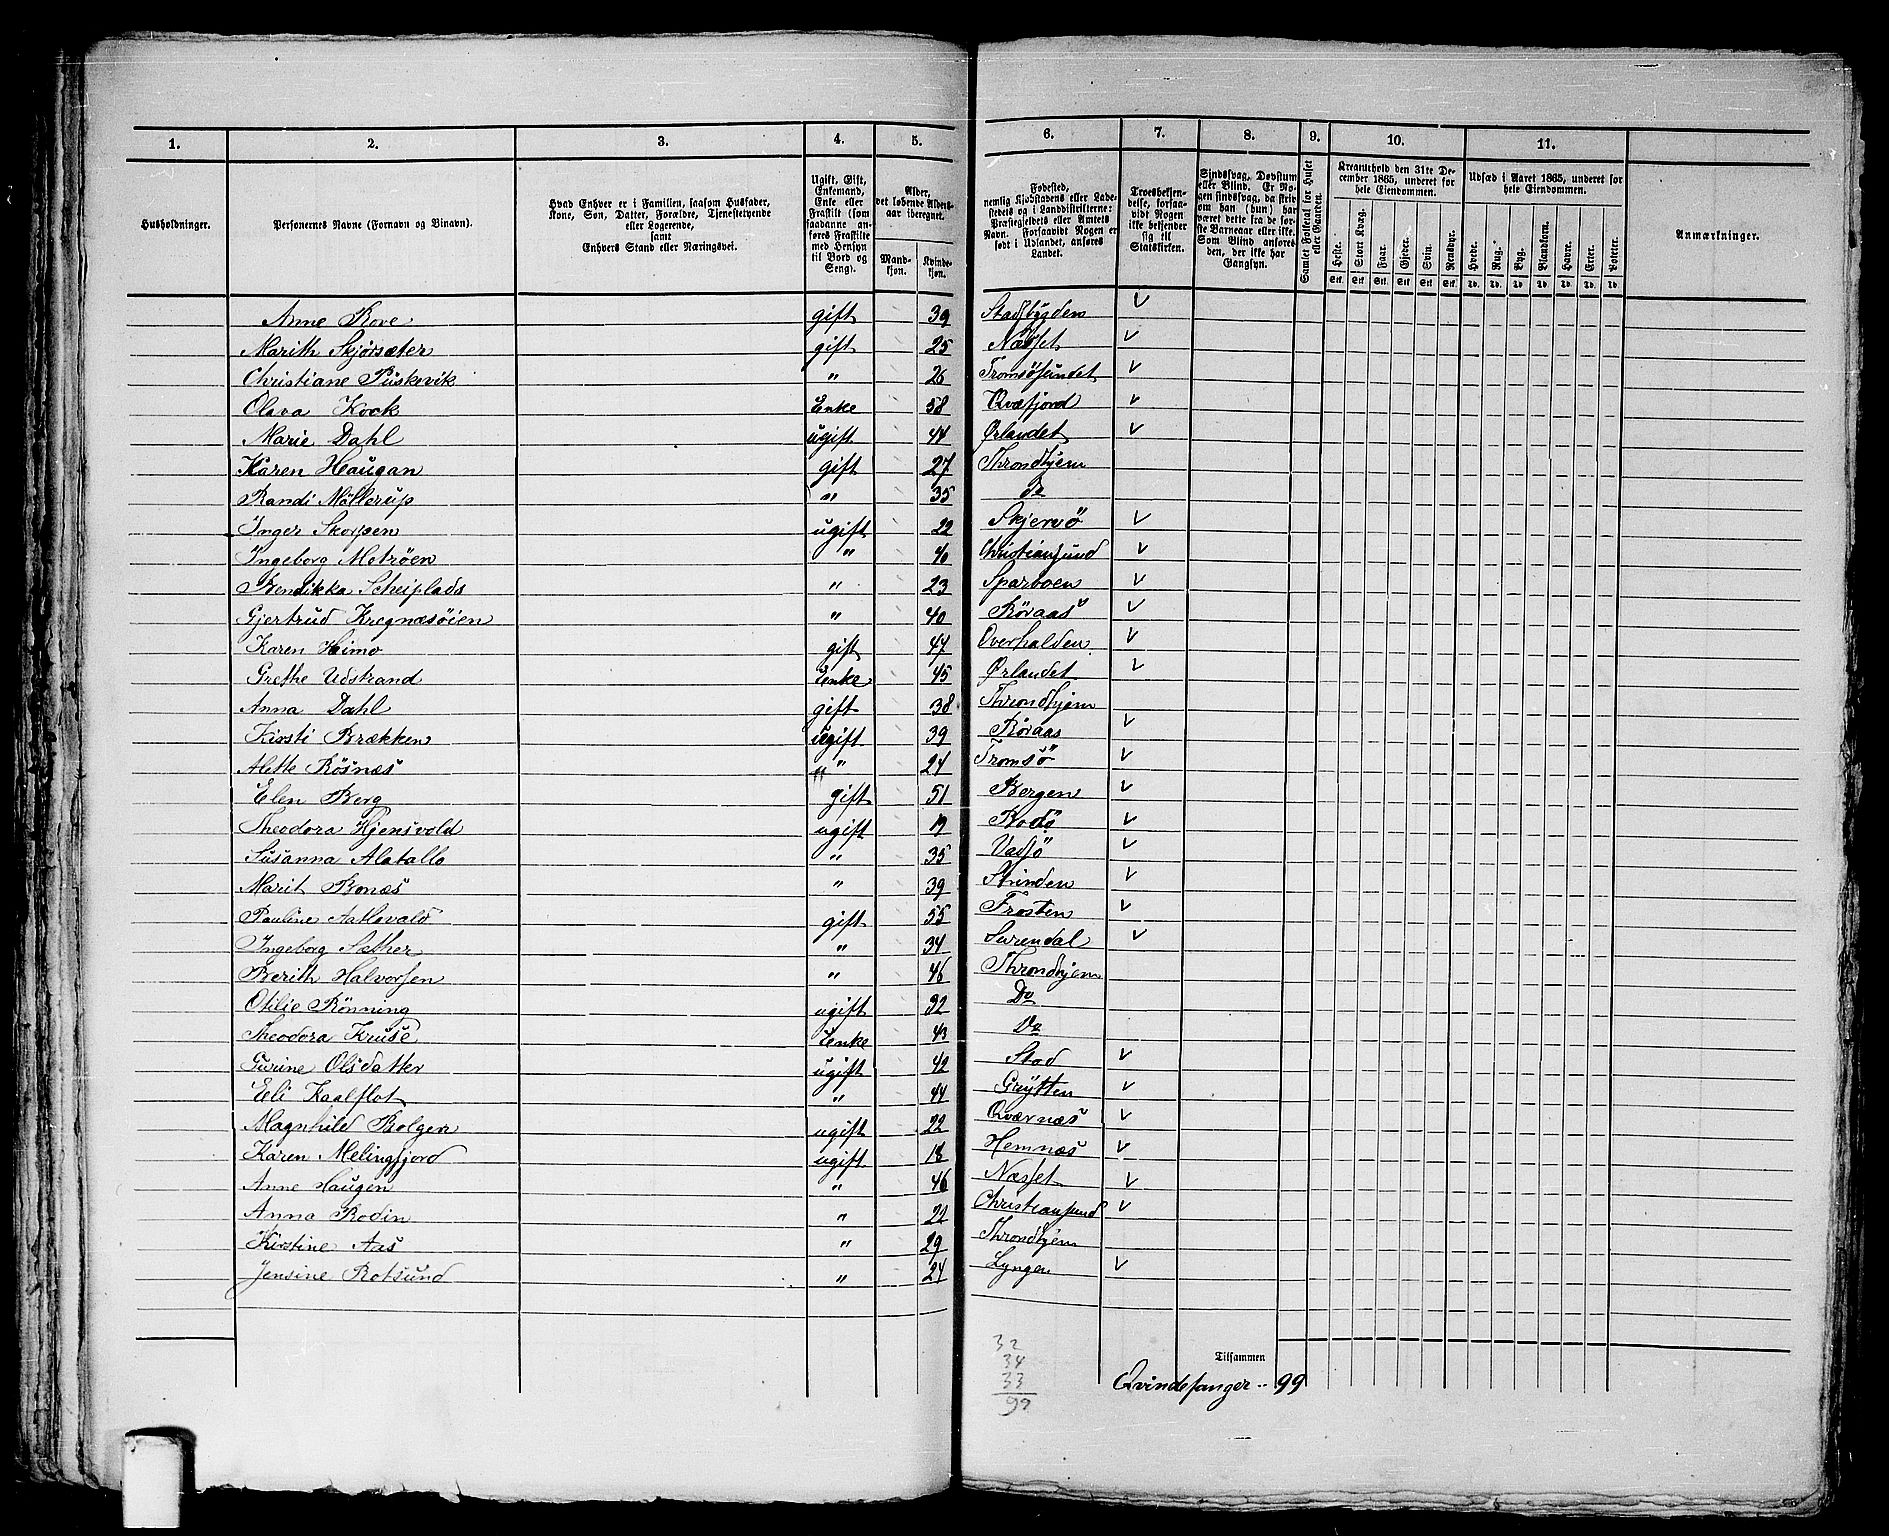 1. 2. 3. 4. 5. 6. 7. 8. 9. 10. 11.
Husholdninger.
Personernes Navne (Fornavn og Binavn).
Hvad Enhver er i Familien, saasom Husfader, Kone, Søn, Datter, Forældre, Tjenestetyende eller Logerende, samt Enhvers Stand eller Næringsvei.
Ugift, Gift, Enkemand, Enke eller Fraskilt (som saadanne anføres Fraskilte med Hensyn til Bord og Seng).
Alder, det løbende Aldersaar iberegnet.
Mandkjøn. Kvindekjøn.
Fødested, nemlig Kjøbstadens eller Ladestedets og i Landdistrikterne: Præstegjeldets eller Amtets Navn. Forsaavidt Nogen er født i Udlandet, anføres Landet.
Troesbekjendelse, forsaavidt Nogen ikke bekjender sig til Statskirken.
Sindssvag, Døvstum eller Blind. Er Nogen sindssvag, da skrives om han (hun) har været dette fra de første Barneaar eller ikke. Som Blind anføres den, der ikke har Gangsyn.
Samlet Folketal for Huset eller Gaarden.
Kreaturhold den 31te December 1865, underet for hele Eiendommen.
Heste. Stort Kvæg. Faar. Gjeder. Svin. Rensdyr.
Stk. Stk. Stk. Stk. Stk. Stk.
Udsæd i Aaret 1865, underet for hele Eiendommen.
Hvede. Rug. Byg. Blandkorn. Havre. Erter. Poteter.
Td. Td. Td. Td. Td. Td. Td.
Anmærkninger.
Anne Rove gift 39 Stadsbygden v
Marith Skjørsæter gift 25 Næsset v
Christiane Puskevik " 26 Tromsøsundet v
Olava Kock Enke 58 Qvæfjord v
Marie Dahl ugift 44 Ørlandet v
Karen Haugan gift 27 Throndhjem
Randi Møllerup " 35 Do
Inger Skorpen ugift 22 Skjervö v
Ingeborg Metrøen " 40 Christiansund v
Bendikka Scheiplads " 23 Sparboen v
Gjertrud Kregnæsöien " 40 Röraas v
Karen Himo gift 47 Overhalden v
Grethe Udstrand Enke 45 Ørlandet v
Anna Dahl gift 38 Throndhjem
Kirsti Brækken ugift 39 Röraas v
Alette Rösnæs " 24 Tromsö v
Elen Berg gift 51 Bergen v
Theodora Hjensvold ugift 19 Bodö v
Susanna Alatallo " 35 Vadsö v
Marit Bonæs " 39 Strinden v
Pauline Aatlevald gift 55 Frosten v
Ingeborg Sæther " 34 Surendal v
Berith Halvorsen " 46 Throndhjem
Otilie Rönning ugift 32 Do
Theodora Kruse Enke 43 Do
Gurine Olsdatter ugift 42 Stod v
Eli Kaalflot " 44 Grÿtten v
Magnhild Bolgen ugift 22 Qværnæs v
Karen Melingfjord ugift 18 Hemnæs v
Anne Haugen " 46 Næsset v
Anna Bodin " 22 Christiansund v
Kirstine Aas " 29 Throndhjem
Jensine Rotsund " 24 Lyngen v
32
34
33
99
Tilsammen
Qvindefanger .. 99